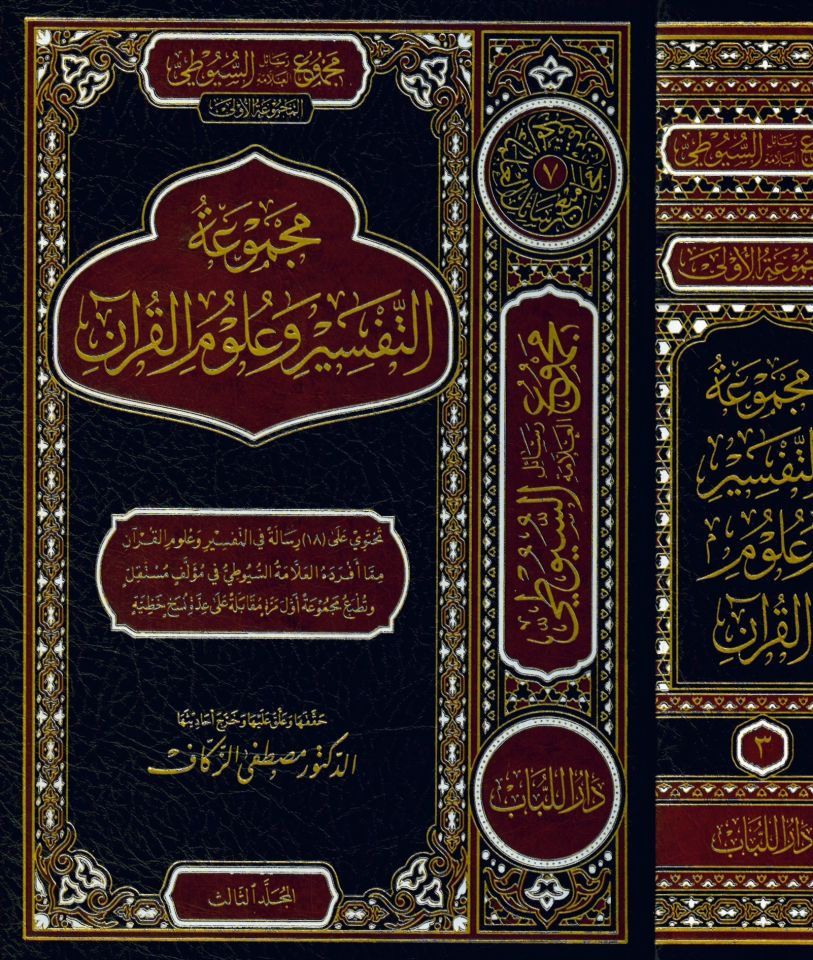 مجموع رسائل العلامة السيوطي
المجموعة الأولى
مَجْمُوعَةُ
التَّفْسِيرِ وَعُلُومِ القُرآنِ
تحتوي عَلَى (١٨) رِسَالَةً فِي التَّفسِيرِ وَعُلومِ القُرآن
مِمَّا أَفْرَدَهُ العَلَّامَةُ السُّيُوطِيُّ فِي مُؤَلَّفٍ مُسْتَقِلٍّ
وتُطبَعُ مَجْمُوعَةً أوَّلَ مَرَّةٍ مُقَابَلَةً عَلَى عِدَّةِ نُسَخٍ خَطِّيَّةٍ
حَقَّقَهَا وَعَلَّقَ عَلَيْهَا وَخَرَّجَ أَحَادِيثَهَا
الدكتور مصطفى الزكاف
المُجَلَّدُ الثَّالِث
٧
مجموع رسائل العلامة السيوطي
دَارُ اللُّبَابِ
رسائل العلامة السُّيُوطِيّ
الأولى
مَجْمُوعَةُ
التَّفْسِيرِ
وَعُلُومِ
القُرآنِ
٣
دَارُ اللُّبَابِ